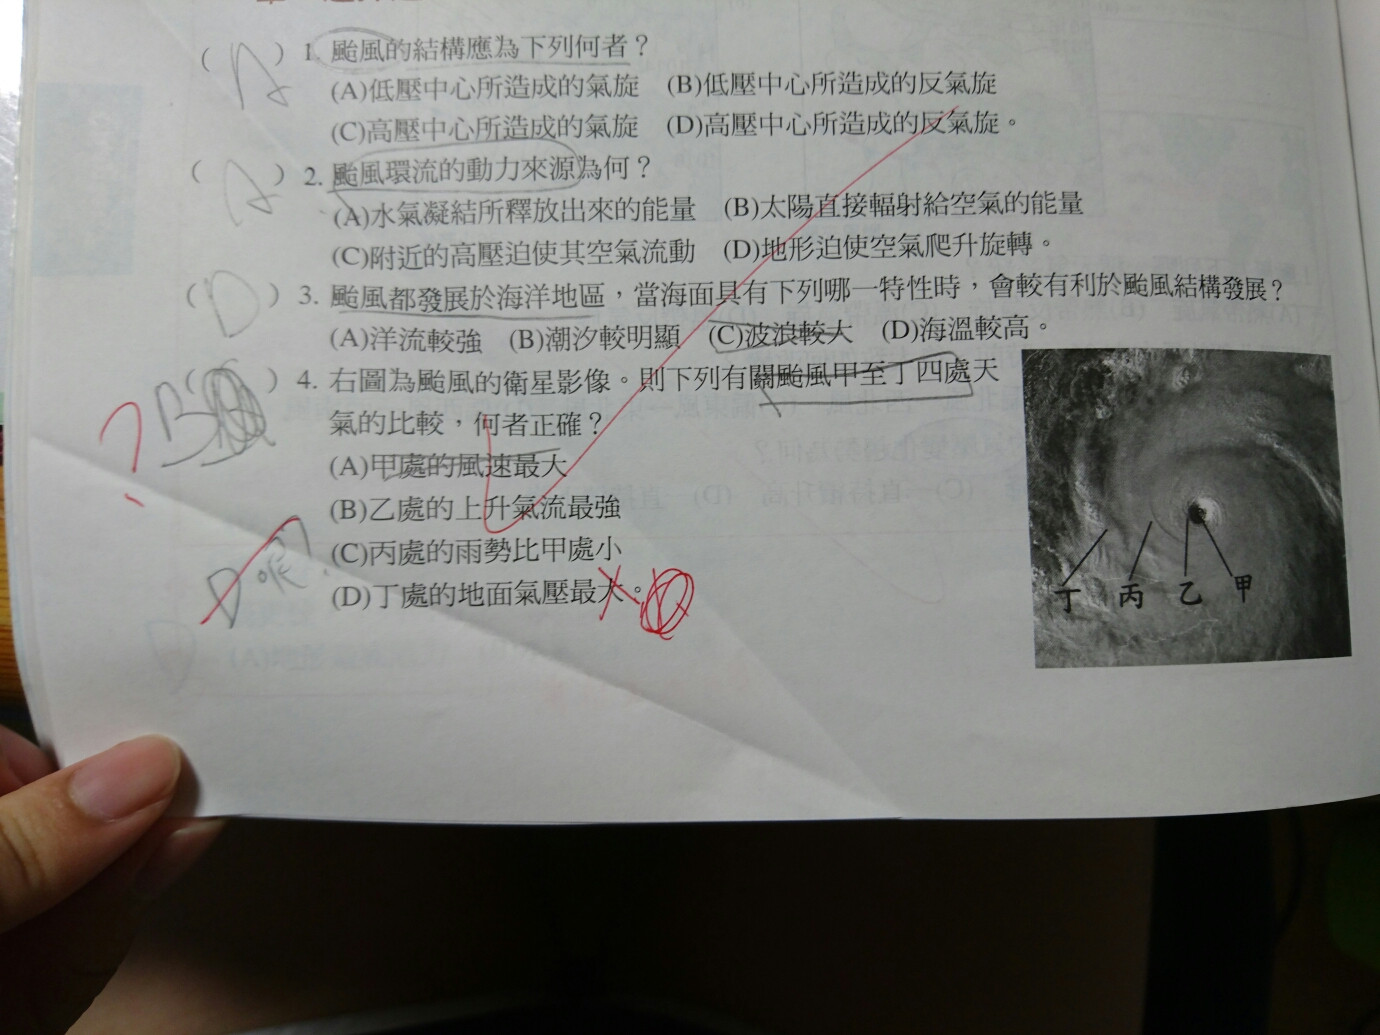 (A) 1. 颱風的結構應為下列何者？
(A)低壓中心所造成的氣旋 (B)低壓中心所造成的反氣旋
(C)高壓中心所造成的氣旋 (D)高壓中心所造成的反氣旋。
(A) 2. 颱風環流的動力來源為何？
(A)水氣凝結所釋放出來的能量 (B)太陽直接輻射給空氣的能量
(C)附近的高壓迫使其空氣流動 (D)地形迫使空氣爬升旋轉。
(D) 3. 颱風都發展於海洋地區，當海面具有下列哪一特性時，會較有利於颱風結構發展？
(A)洋流較強 (B)潮汐較明顯 (C)波浪較大 (D)海溫較高。
? B ( ) 4. 右圖為颱風的衛星影像。則下列有關颱風甲至丁四處天
氣的比較，何者正確？
(A)甲處的風速最大
(B)乙處的上升氣流最強
(C)丙處的雨勢比甲處小
D
(D)丁處的地面氣壓最大。
丁 丙 乙 甲